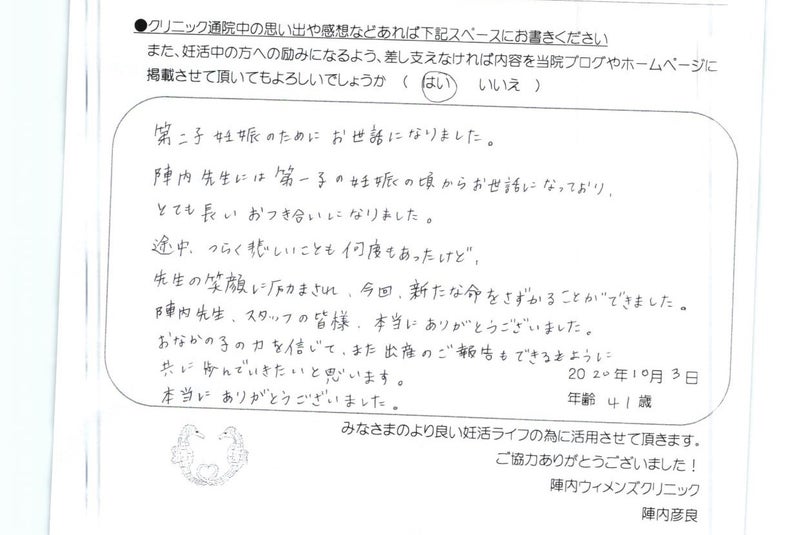 ●クリニック通院中の思い出や感想などあれば下記スペースにお書きください
また、妊活中の方への励みになるよう、差し支えなければ内容を当院ブログやホームページに
掲載させて頂いてもよろしいでしょうか （ はい いいえ ）
第二子妊娠のために お世話になりました。
陣内先生には 第一子の妊娠の頃からお世話になっており、
とても長い おつき合いになりました。
途中、つらく悲しいことも 何度もあったけど、
先生の笑顔に励まされ、今回、新たな命をさずかることができました。
陣内先生、スタッフの皆様、本当に ありがとうございました。
おなかの子の力を信じて、また出産のご報告もできるように
共に歩んでいきたいと思います。
本当に ありがとうございました。
2020年10月3日
年齢 41歳
みなさまのより良い妊活ライフの為に活用させて頂きます。
ご協力ありがとうございました！
陣内ウィメンズクリニック
陣内彦良